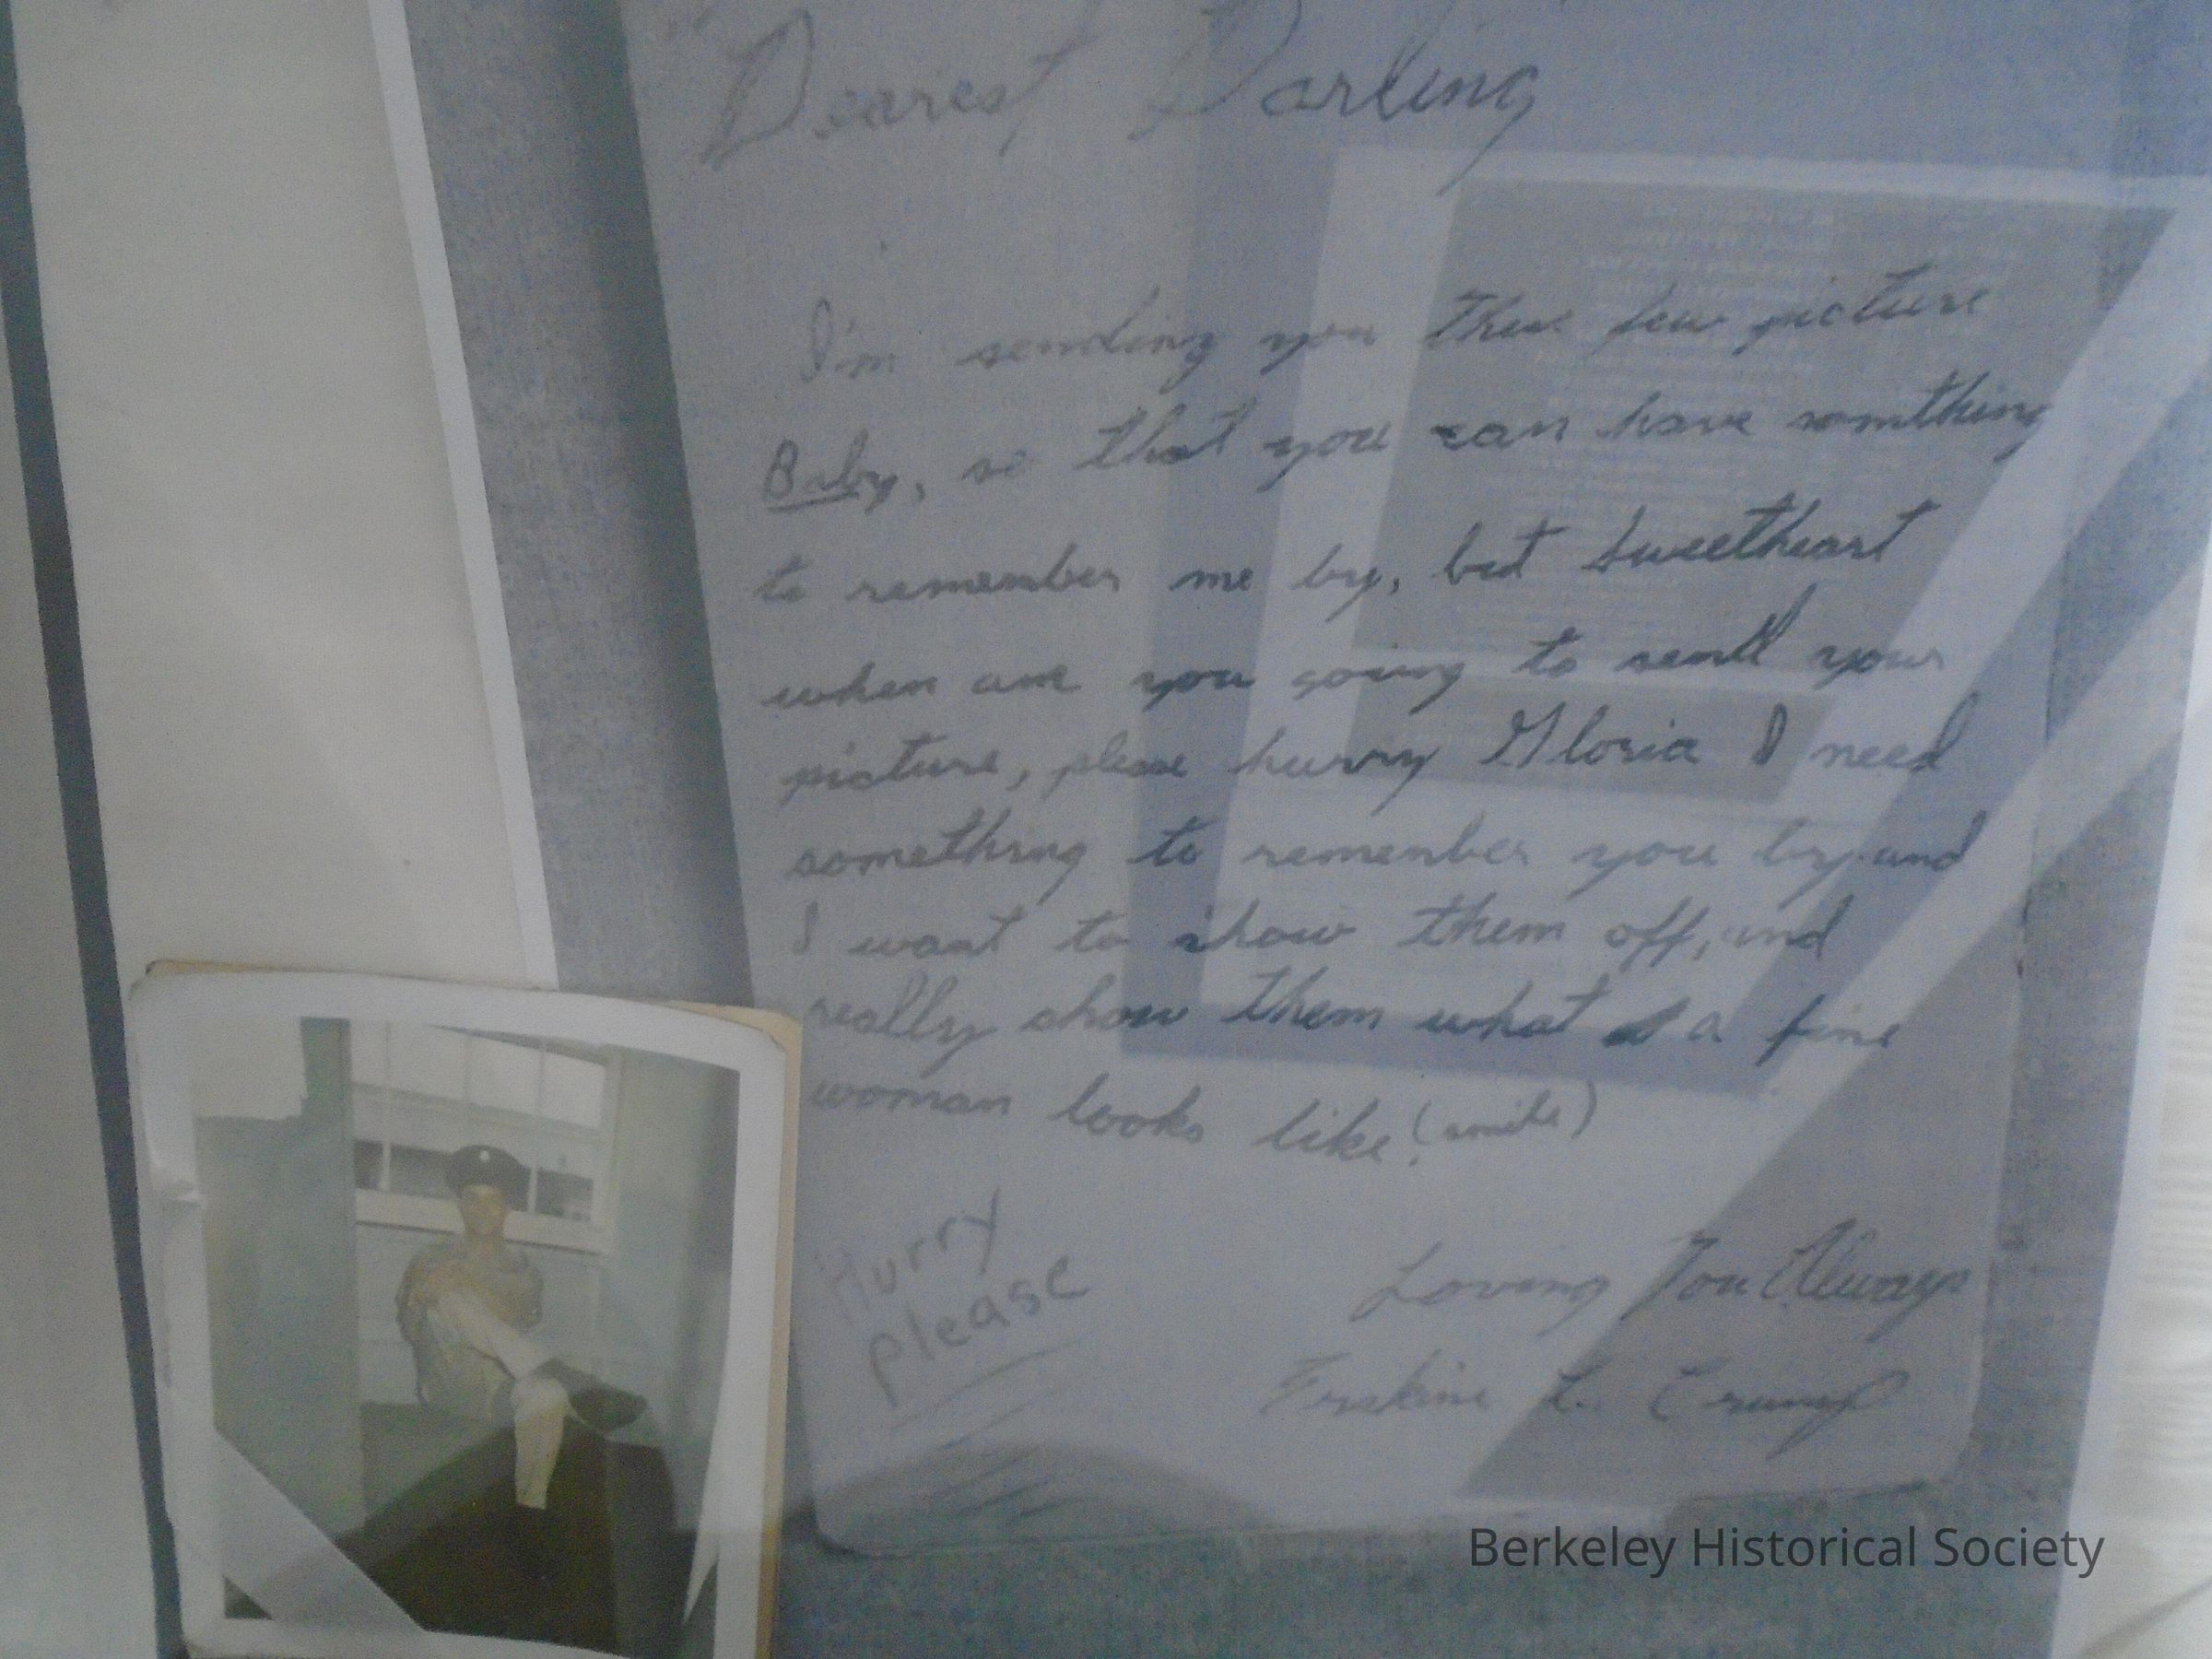 Dearest Darling
I'm sending you these few picture
Baby, so that you can have somthing
to remember me by, but Sweetheart
when are you going to send your
picture, please hurry Gloria I need
something to remember you by and
I want to show them off, and
really show them what a fine
woman looks like! (smile)
Hurry
please
Loving You Always
Erskine L. Crump
Berkeley Historical Society